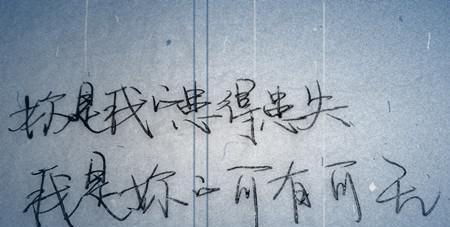 妳是我的患得患失
我是妳的可有可无